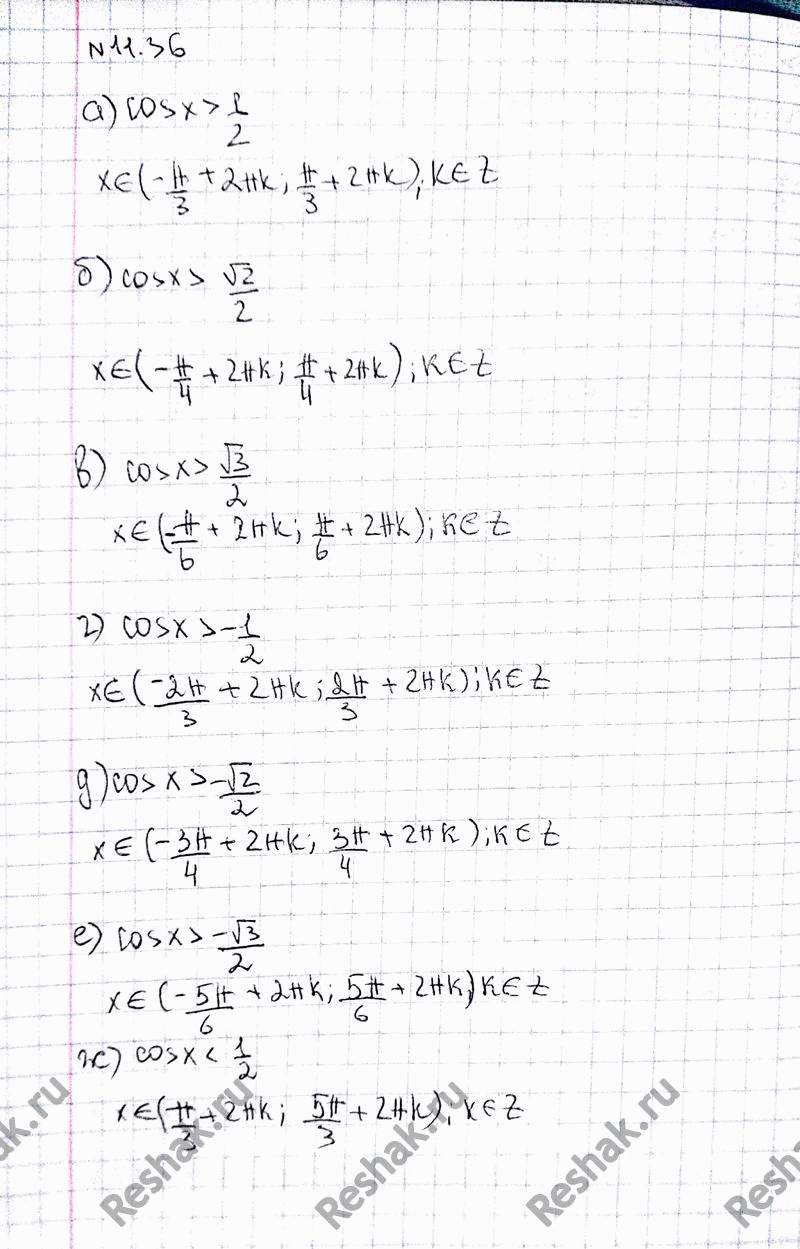 N11.36
а) cos x > 1/2
x∈(-π/3 + 2πk; π/3 + 2πk); k∈Z
б) cos x > √2/2
x∈(-π/4 + 2πk; π/4 + 2πk); k∈Z
в) cos x > √3/2
x∈(-π/6 + 2πk; π/6 + 2πk); k∈Z
г) cos x > -1/2
x∈(-2π/3 + 2πk; 2π/3 + 2πk); k∈Z
д) cos x > -√2/2
x∈(-3π/4 + 2πk; 3π/4 + 2πk); k∈Z
е) cos x > -√3/2
x∈(-5π/6 + 2πk; 5π/6 + 2πk) k∈Z
ж) cos x < 1/2
x∈(π/3 + 2πk; 5π/3 + 2πk); k∈Z
Reshak.ru
Reshak.ru
Reshak.ru